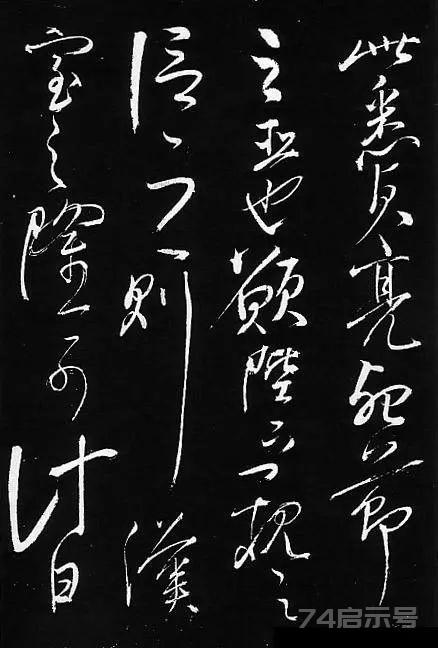 此悉貞亮死節
之臣也願陛下親之
信之則漢
室之隆可計日
74启示号